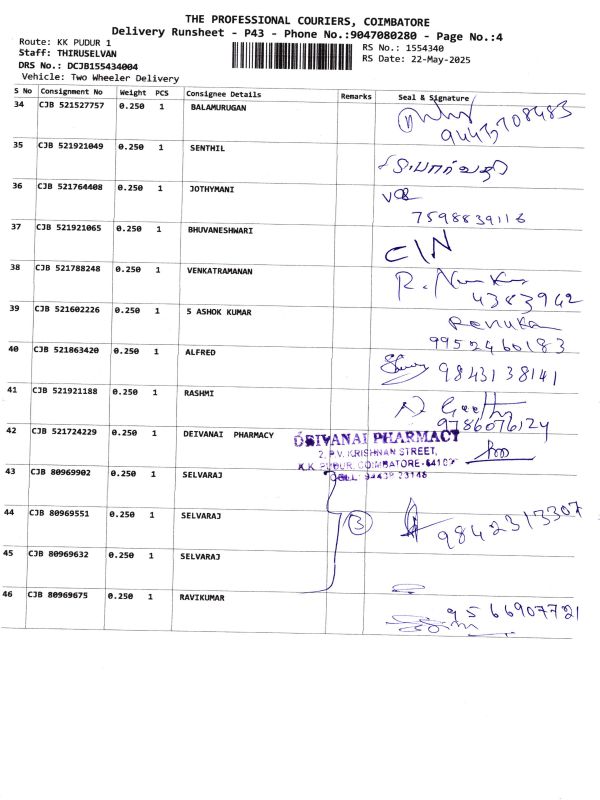 THE PROFESSIONAL COURIERS, COIMBATORE
Delivery Runsheet - P43 - Phone No.:9047080280 - Page No.:4
Route: KK PUDUR 1
RS No.: 1554340
Staff: THIRUSELVAN
RS Date: 22-May-2025
DRS No.: DCJB155434004
Vehicle: Two Wheeler Delivery
S No Consignment No Weight PCS Consignee Details Remarks Seal & Signature
34 CJB 521527757 0.250 1 BALAMURUGAN
9443708483
35 CJB 521921049 0.250 1 SENTHIL
36 CJB 521764408 0.250 1 JOTHYMANI
7598839116
37 CJB 521921065 0.250 1 BHUVANESHWARI
C/N
38 CJB 521788248 0.250 1 VENKATRAMANAN
4383942
39 CJB 521602226 0.250 1 S ASHOK KUMAR Renuka
9952460183
40 CJB 521863420 0.250 1 ALFRED
9843138141
41 CJB 521921188 0.250 1 RASHMI
9786076124
42 CJB 521724229 0.250 1 DEIVANAI PHARMACY
DEIVANAI PHARMACY
2, P.V. KRISHNAN STREET,
K.K. PUDUR, COIMBATORE-
CELL: 94439 23146
43 CJB 80969902 0.250 1 SELVARAJ
44 CJB 80969551 0.250 1 SELVARAJ 3 9842313307
45 CJB 80969632 0.250 1 SELVARAJ
46 CJB 80969675 0.250 1 RAVIKUMAR
9566907721